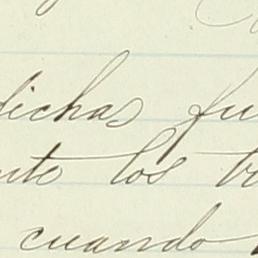 dichas fu
nte los tr
cuando